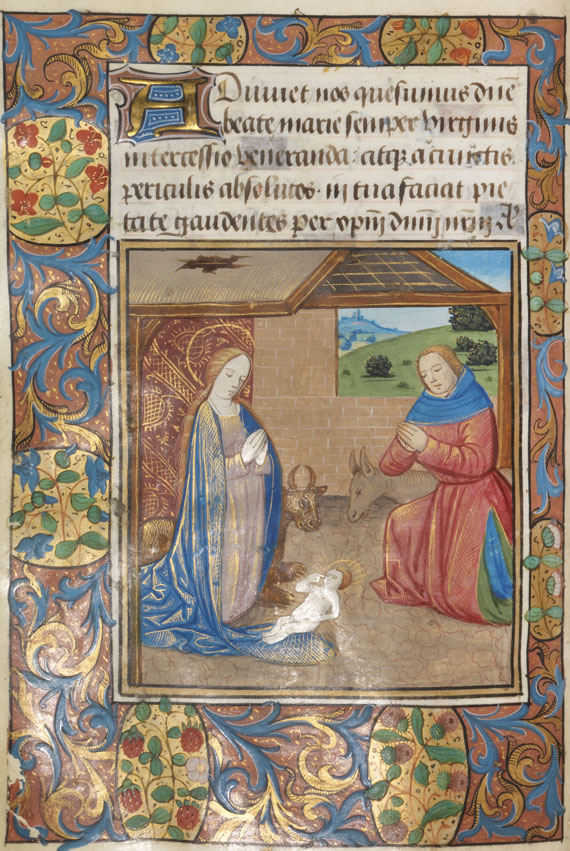 Adiuuet nos quesumus dñe
beate marie semper virginis
intercessio veneranda: atqz a cunctis
periculis absolutos· in tua faciat pie
tate gaudentes per xpm̃ dnm̃ nr̃m